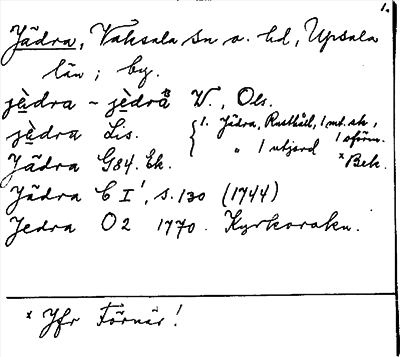 1.
Jädra, Vaksala sn o. hd, Upsala
län; by.
jèdra ~ jèdrå V., Ols.
jèdra Lis. { 1. Jädra, Rusthåll, 1 mt. sk,
" 1 utjord 1 oförm.
Jädra G84. Ek. x Bek.
Jädra C I', s. 130 (1744)
Jedra O2 1770. Kyrkoraku.
x Jfr Förnär!